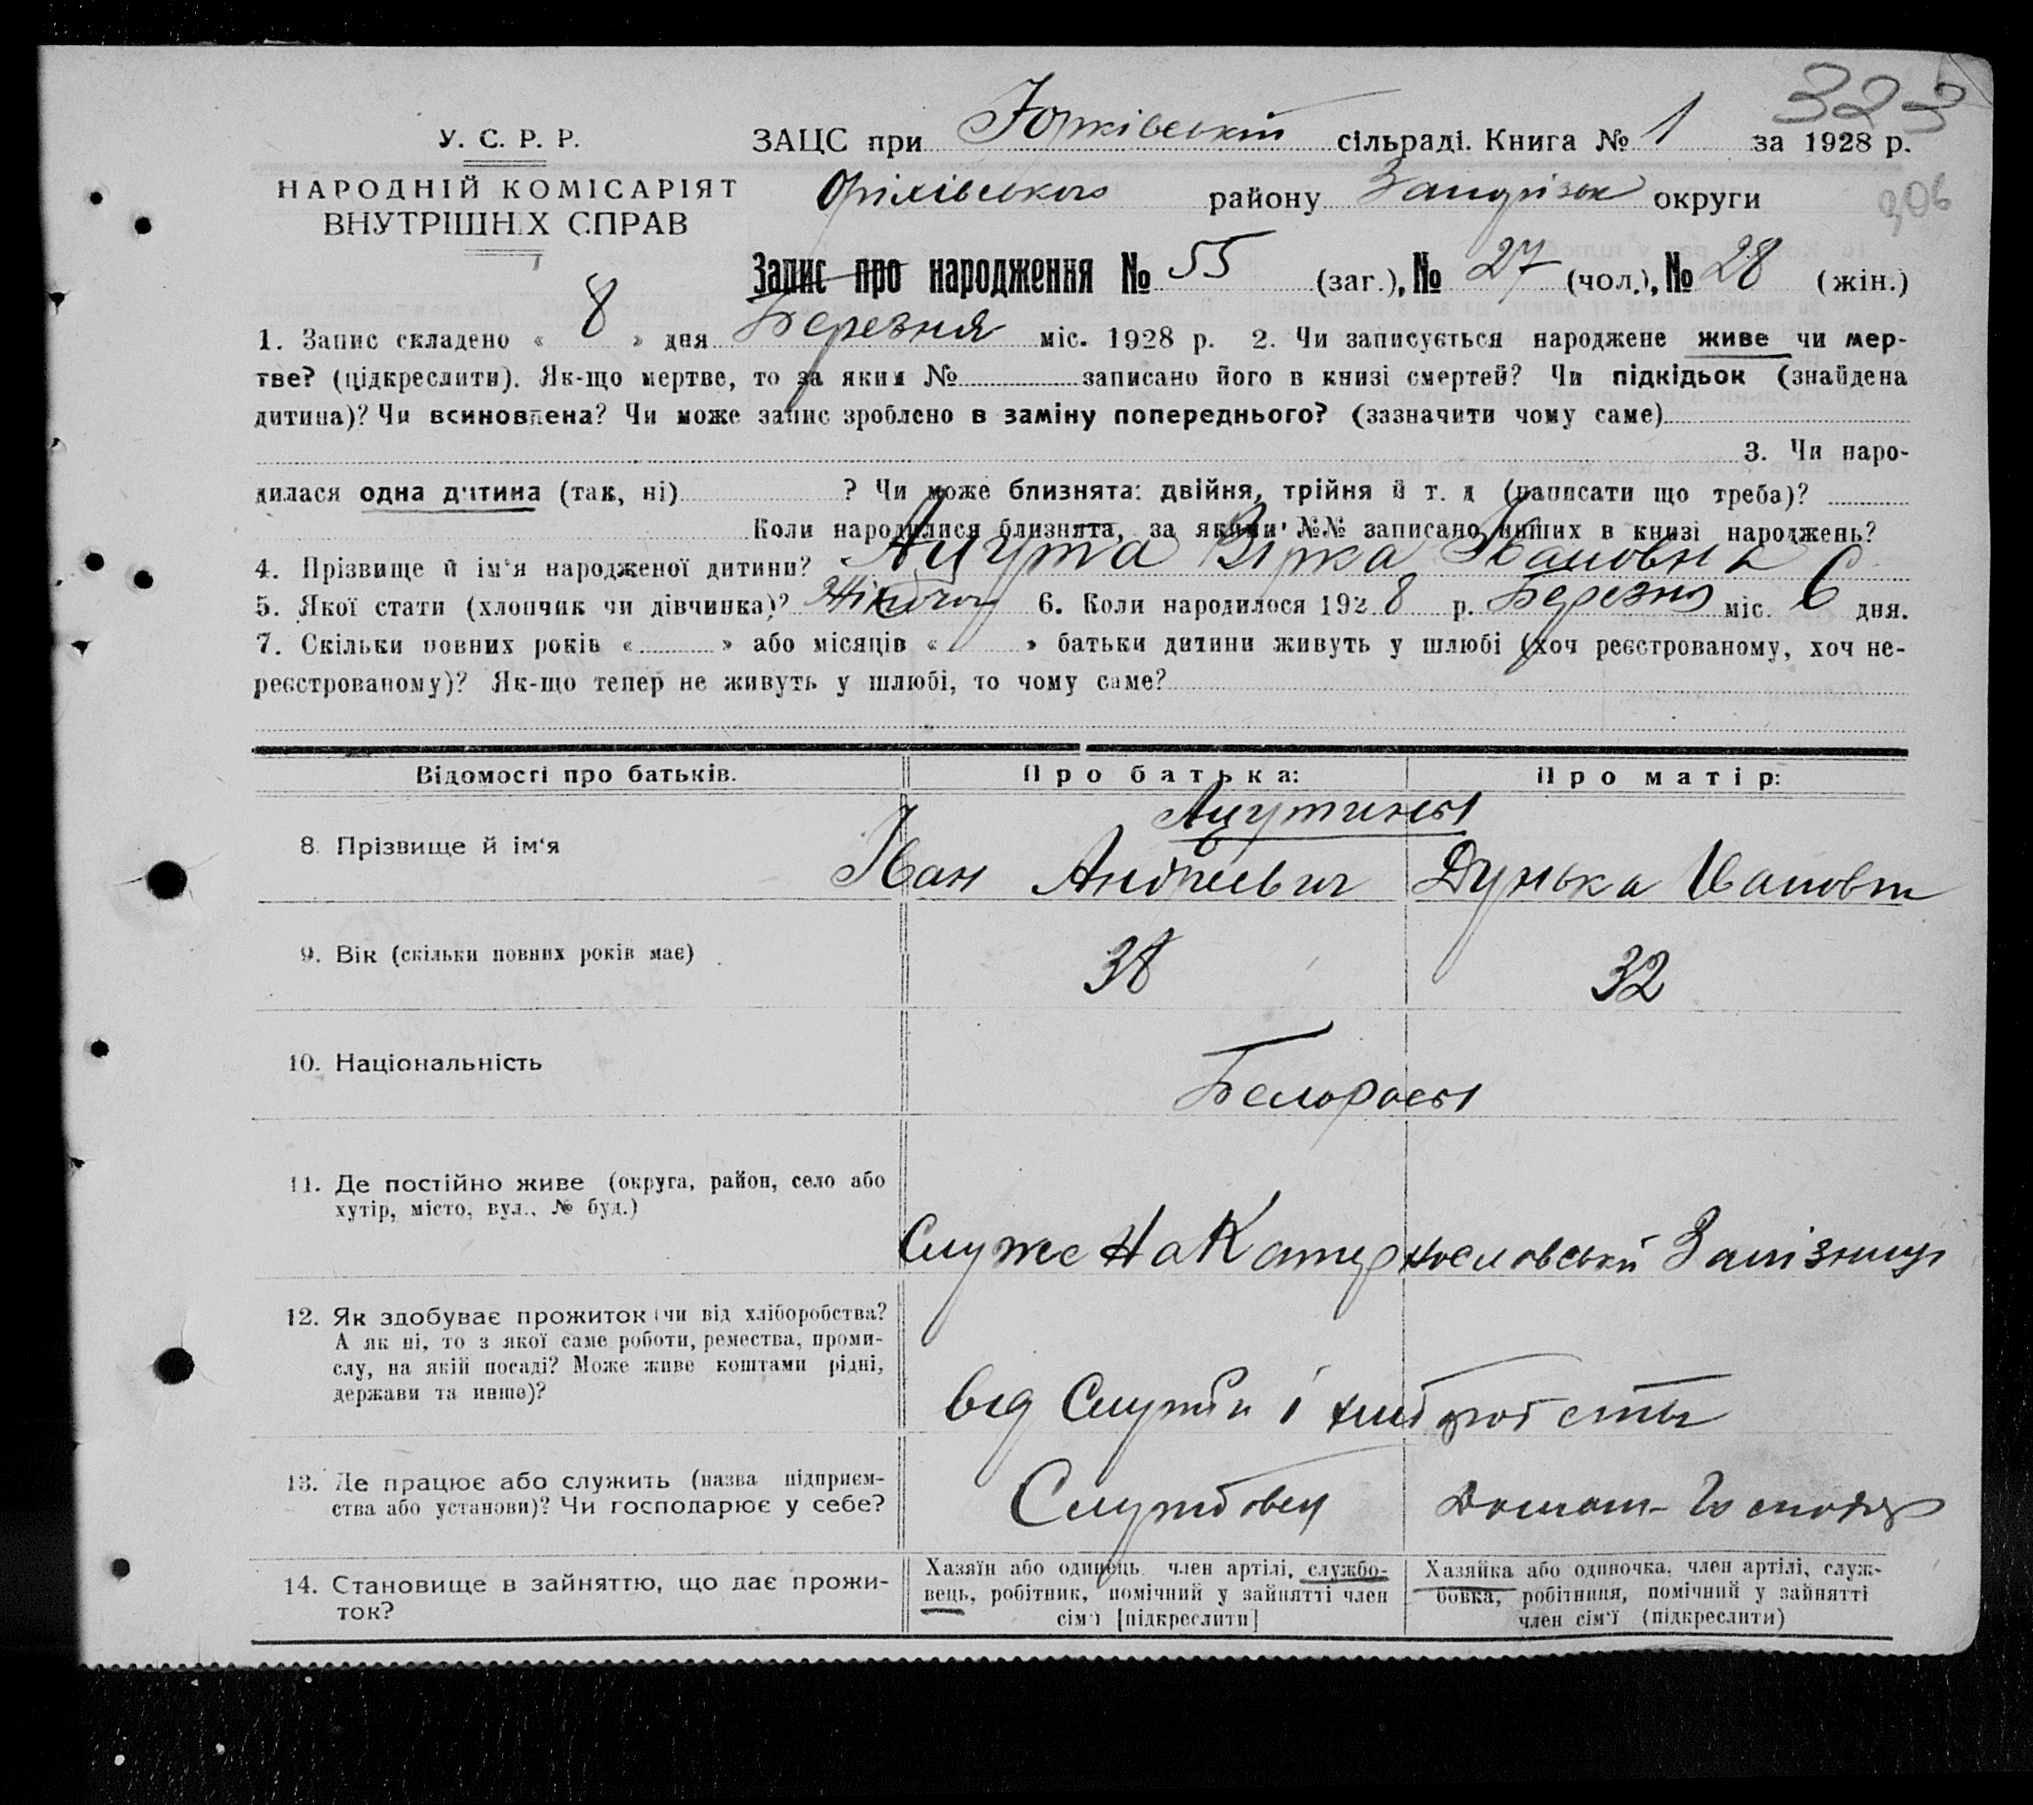 323
У. С. Р. Р.
НАРОДНІЙ КОМІСАРІЯТ
ВНУТРІШНІХ СПРАВ
ЗАЦС при Юрківській сільраді. Книга № 1 за 1928 р.
Оріхівського району Запоріж округи
906
Запис про народження № 55 (заг.), № 27 (чол.), № 28 (жін.)
1. Запис складено « 8 » дня Березня міс. 1928 р. 2. Чи записується народжене живе чи мер-
тве? (підкреслити). Як-що мертве, то за яким № записано його в книзі смертей? Чи підкідьок (знайдена
дитина)? Чи всиновлена? Чи може запис зроблено в заміну попереднього? (зазначити чому саме)
3. Чи наро-
дилася одна дитина (так, ні) ? Чи може близнята: двійня, трійня й т. д (написати що треба)?
Коли народилися близнята, за якими №№ записано инших в книзі народжень?
4. Прізвище й ім'я народженої дитини? Ацута Вірка Івановна
5. Якої стати (хлопчик чи дівчинка)? Жіночої 6. Коли народилося 1928 р. Березня міс. 6 дня.
7. Скільки повних років « » або місяців « » батьки дитини живуть у шлюбі (хоч реєстрованому, хоч не-
реєстрованому)? Як-що тепер не живуть у шлюбі, то чому саме?
Відомості про батьків.
Про батька:
Про матір:
8. Прізвище й ім'я
Ацутины
Іван Андреевич
Дунька Івановна
9. Вік (скільки повних років має)
38
32
10. Національність
Белорасы
11. Де постійно живе (округа, район, село або
хутір, місто, вул., № буд.)
Служе На Катернославській Залізниці
12. Як здобуває прожиток (чи від хліборобства?
А як ні, то з якої саме роботи, ремества, проми-
слу, на якій посаді? Може живе коштами рідні,
держави та инше)?
від Служби і хліборобства
13. Де працює або служить (назва підприєм-
ства або установи)? Чи господарює у себе?
Службовец
Домаш-Господар
14. Становище в зайняттю, що дає прожи-
ток?
Хазяїн або одинець, член артілі, службо-
вець, робітник, помічний у зайнятті член
сім'ї [підкреслити]
Хазяйка або одиночка, член артілі, служ-
бовка, робітниця, помічний у зайнятті
член сім'ї (підкреслити)